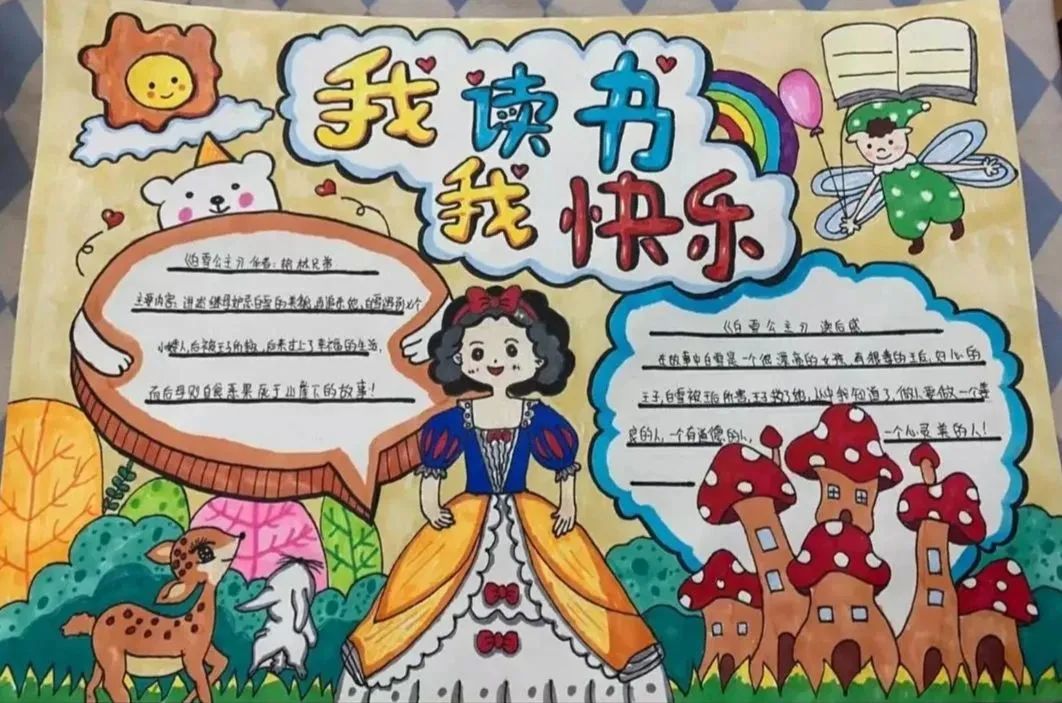 我读书
我快乐
《白雪公主》作者：格林兄弟
主要内容：讲述继母妒忌白雪的美貌，白雪遇到七个
小矮人，后被王子所救，后来过上了幸福的生活，
而后母则自食恶果死于山崖下的故事！
《白雪公主》读后感
在故事中白雪是一个很漂亮的女孩，有狠毒的王后，好心的
王子，白雪被王后所害，王子救了她，从中我知道了，做人要做一个善
良的人，一个有道德的人， 一个心灵美的人！